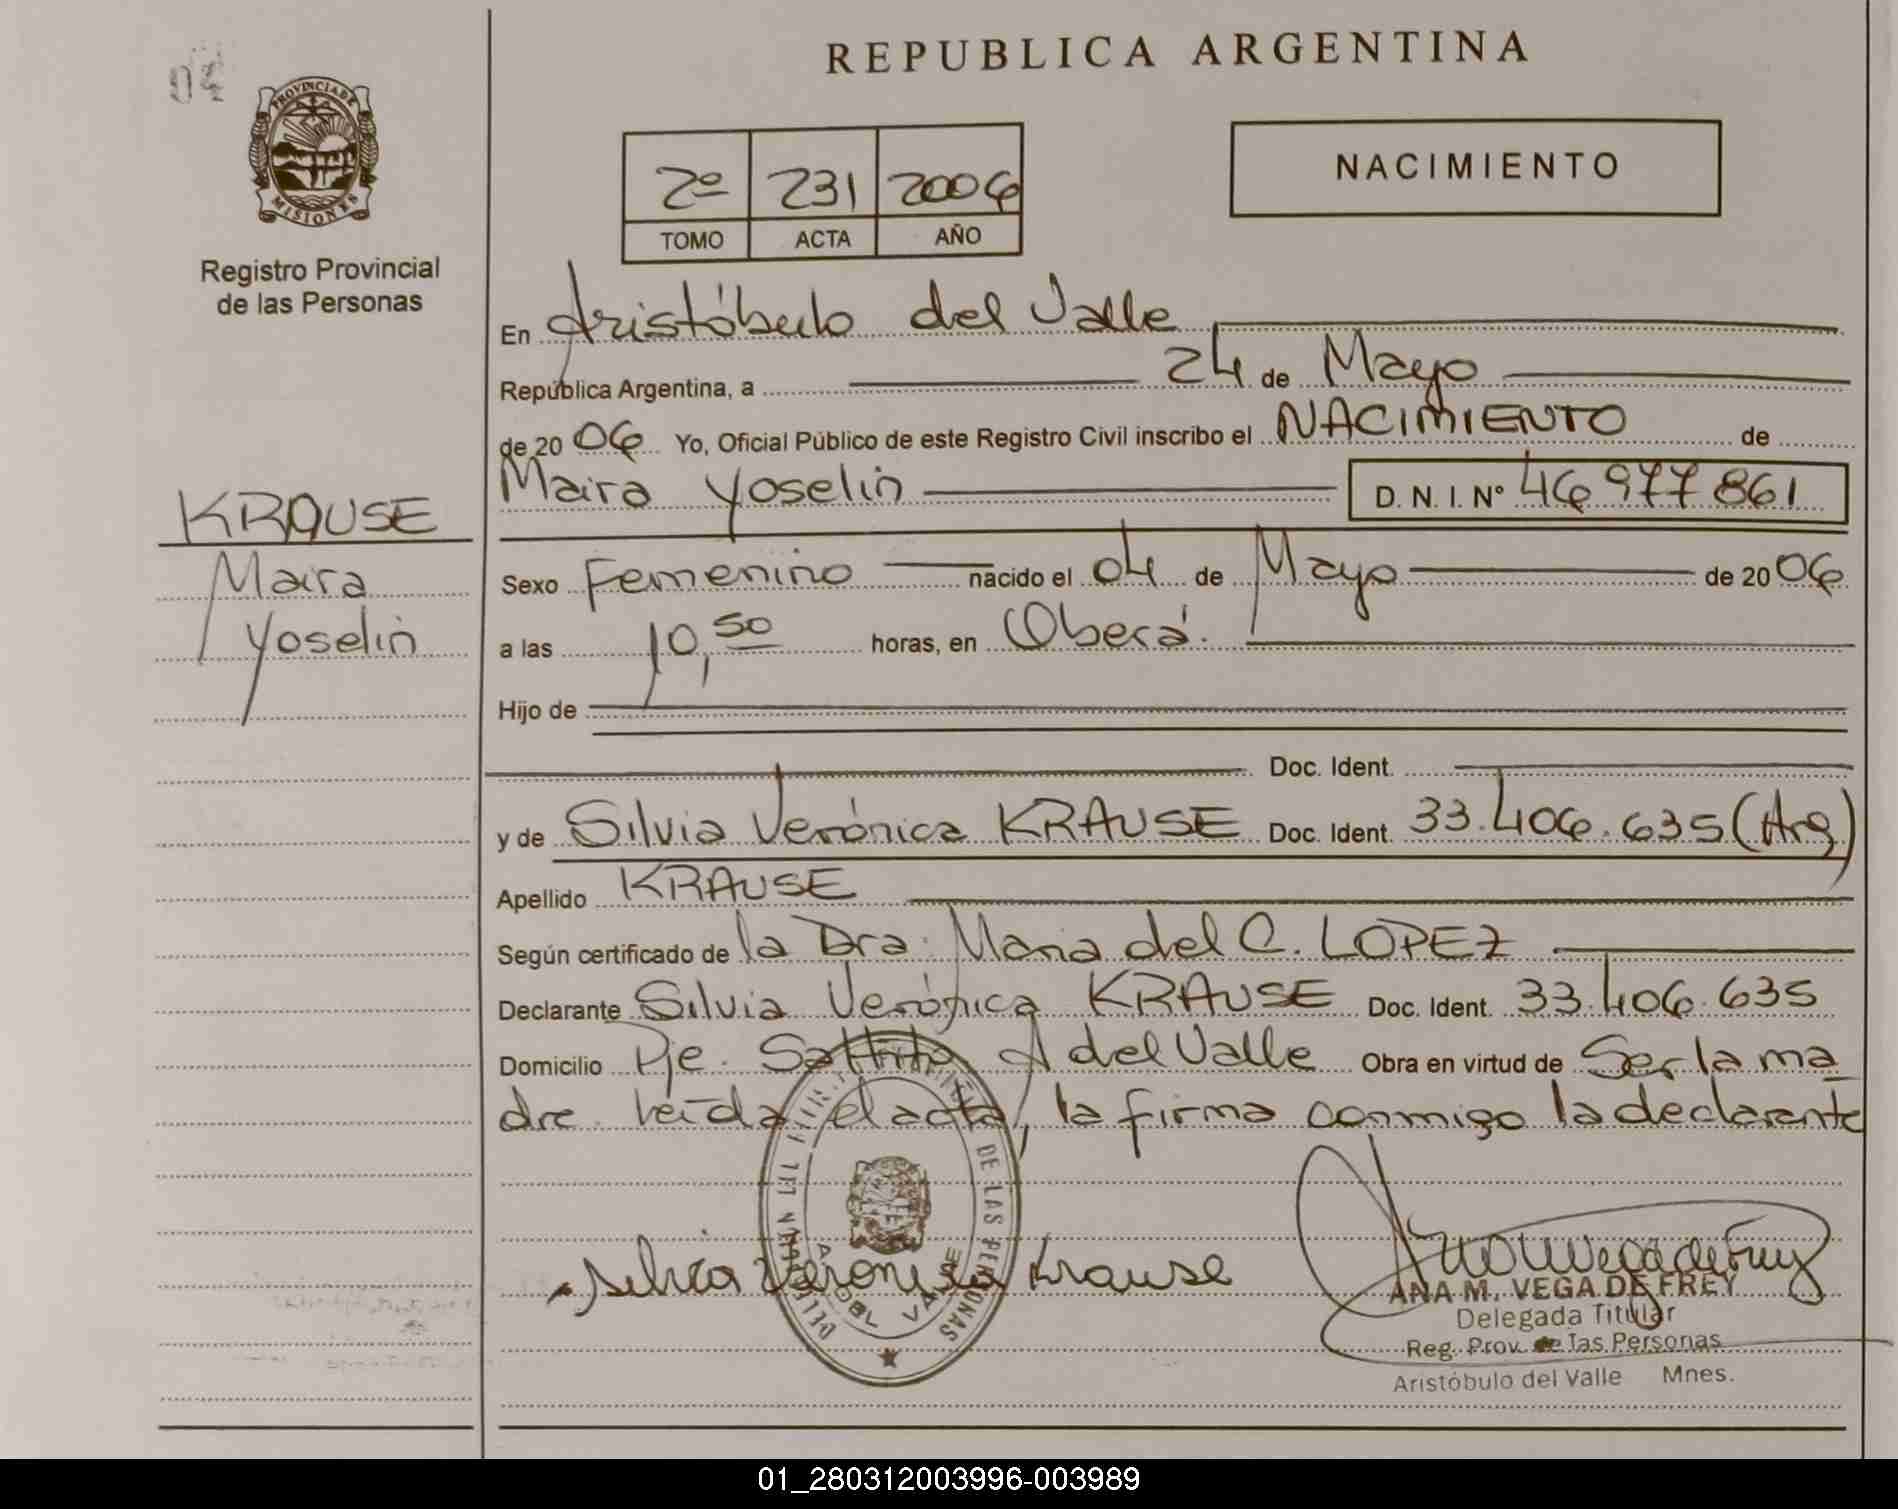 REPUBLICA ARGENTINA
PROVINCIA DE
MISIONES
Registro Provincial
de las Personas
2º 231 2006
TOMO ACTA AÑO
NACIMIENTO
En Aristóbulo del Valle
República Argentina, a 24 de Mayo
de 20 06 Yo, Oficial Público de este Registro Civil inscribo el NACIMIENTO de
Maira Yoselin D. N. I. Nº 46 977 861
KRAUSE
Maira
Yoselin
Sexo Femenino nacido el 04 de Mayo de 20 06
a las 10,50 horas, en Oberá.
Hijo de
Doc. Ident.
y de Silvia Verónica KRAUSE Doc. Ident. 33.406.635 (Arg)
Apellido KRAUSE
Según certificado de la Dra. Maria del C. LOPEZ
Declarante Silvia Verónica KRAUSE Doc. Ident. 33.406.635
Domicilio Pje. Saltito A del Valle Obra en virtud de Ser la ma
dre. Leída el acta, la firma conmigo la declarante
DE LAS PERSONAS
Silvia Veronica Krause
ANA M. VEGA DE FREY
Delegada Titular
Reg. Prov. de las Personas
Aristóbulo del Valle Mnes.
01_280312003996-003989